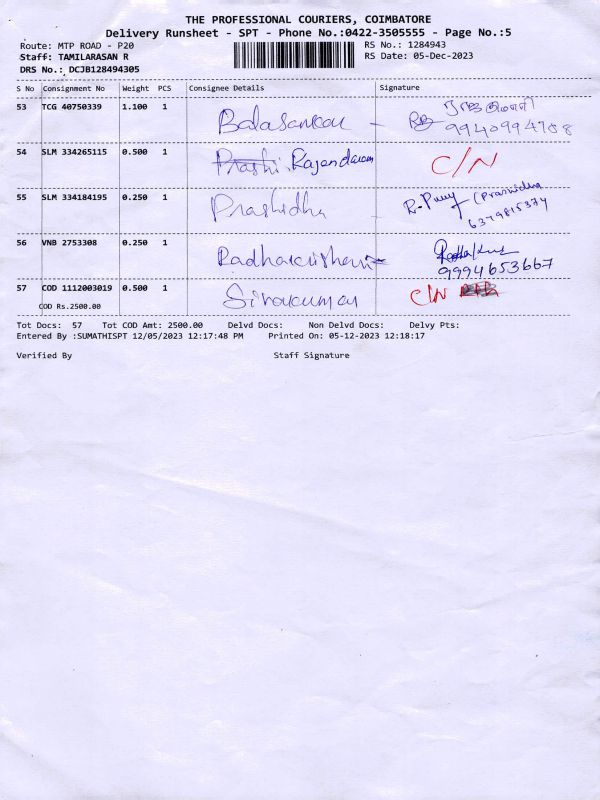 THE PROFESSIONAL COURIERS, COIMBATORE
Delivery Runsheet - SPT - Phone No.:0422-3505555 - Page No.:5
Route: MTP ROAD - P20
RS No.: 1284943
Staff: TAMILARASAN R
RS Date: 05-Dec-2023
DRS No.: DCJB128494305
S No Consignment No Weight PCS Consignee Details Signature
53 TCG 40750339 1.100 1 Balasankar
9940994708
54 SLM 334265115 0.500 1 Rajendaran C/N
55 SLM 334184195 0.250 1 Prashidha
6379815374
56 VNB 2753308 0.250 1
9994653667
57 COD 1112003019 0.500 1 Sivakumar C/N
COD Rs.2500.00
Tot Docs: 57 Tot COD Amt: 2500.00 Delvd Docs: Non Delvd Docs: Delvy Pts:
Entered By :SUMATHISPT 12/05/2023 12:17:48 PM Printed On: 05-12-2023 12:18:17
Verified By Staff Signature